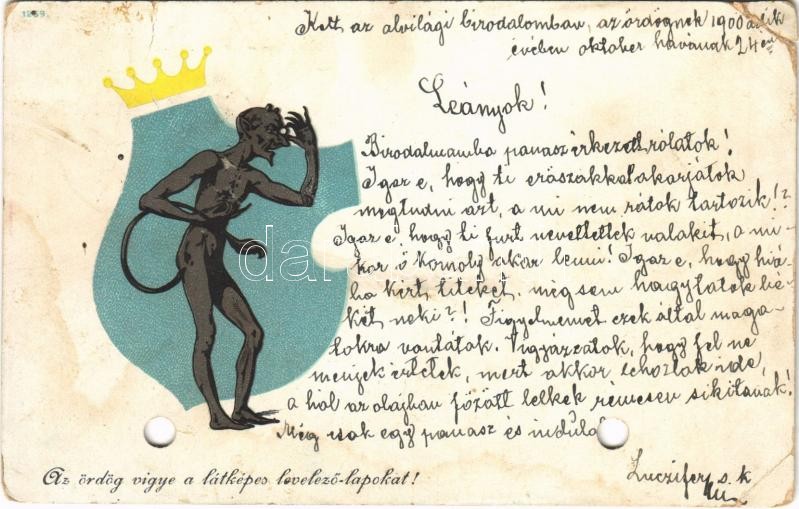 1259
Kelt az alvilági birodalomban, az ördögnek 1900 adik
évében október havának 24 én
Leányok!
Birodalmamba panasz érkezett rólatok!
Igaz e, hogy ti erőszakkal akarjátok
megtudni azt, a mi nem rátok tartozik!?
Igaz e, hogy ti furt nevettetek valakit, a mi-
kor ő komoly akar lenni! Igaz e, hogy hiá-
ba kért titeket, még sem hagytatok bé-
két neki?! Figyelmemet ezek által maga-
tokra vontátok. Vigyázzatok, hogy fel ne
menjek értetek, mert akkor lehozlak ide,
a hol az olajban főzött lelkek rémesen sikítanak!
Még csak egy panasz és indulok
Luczifer s. k
Az ördög vigye a látképes levelező-lapokat!
darabanth